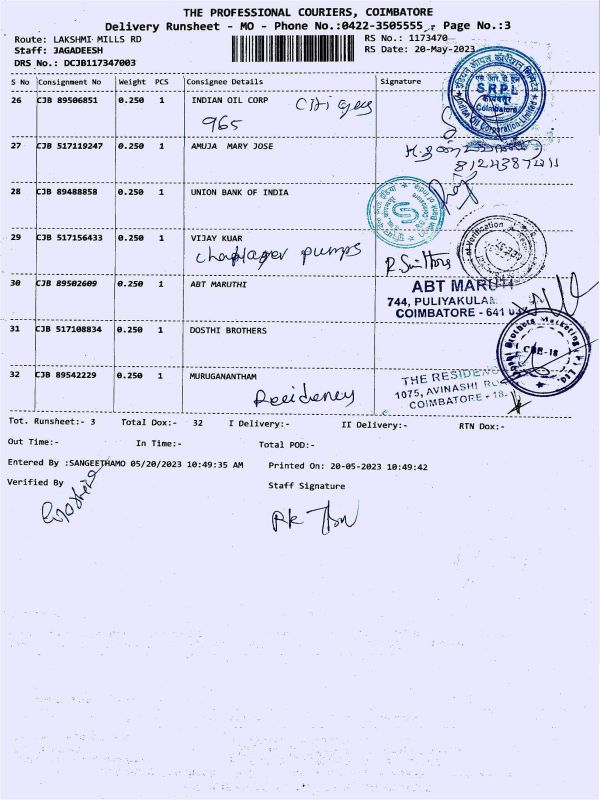 THE PROFESSIONAL COURIERS, COIMBATORE
Delivery Runsheet - MO - Phone No.:0422-3505555 , Page No.:3
Route: LAKSHMI MILLS RD
RS No.: 1173470
Staff: JAGADEESH
RS Date: 20-May-2023
DRS No.: DCJB117347003
S No Consignment No Weight PCS Consignee Details Signature
26 CJB 89506851 0.250 1 INDIAN OIL CORP
965
S R P L
Coimbatore
Indian Oil Corporation Limited
27 CJB 517119247 0.250 1 AMUJA MARY JOSE
28 CJB 89488858 0.250 1 UNION BANK OF INDIA
29 CJB 517156433 0.250 1 VIJAY KUAR
pumps
30 CJB 89502609 0.250 1 ABT MARUTHI
ABT MARUTI
744, PULIYAKULAM
COIMBATORE - 641
31 CJB 517108834 0.250 1 DOSTHI BROTHERS
CBE-18
32 CJB 89542229 0.250 1 MURUGANANTHAM
Residency
THE RESIDENCY
1075, AVINASHI
COIMBATORE - 18.
Tot. Runsheet:- 3 Total Dox:- 32 I Delivery:- II Delivery:- RTN Dox:-
Out Time:- In Time:- Total POD:-
Entered By :SANGEETHAMO 05/20/2023 10:49:35 AM Printed On: 20-05-2023 10:49:42
Verified By Staff Signature